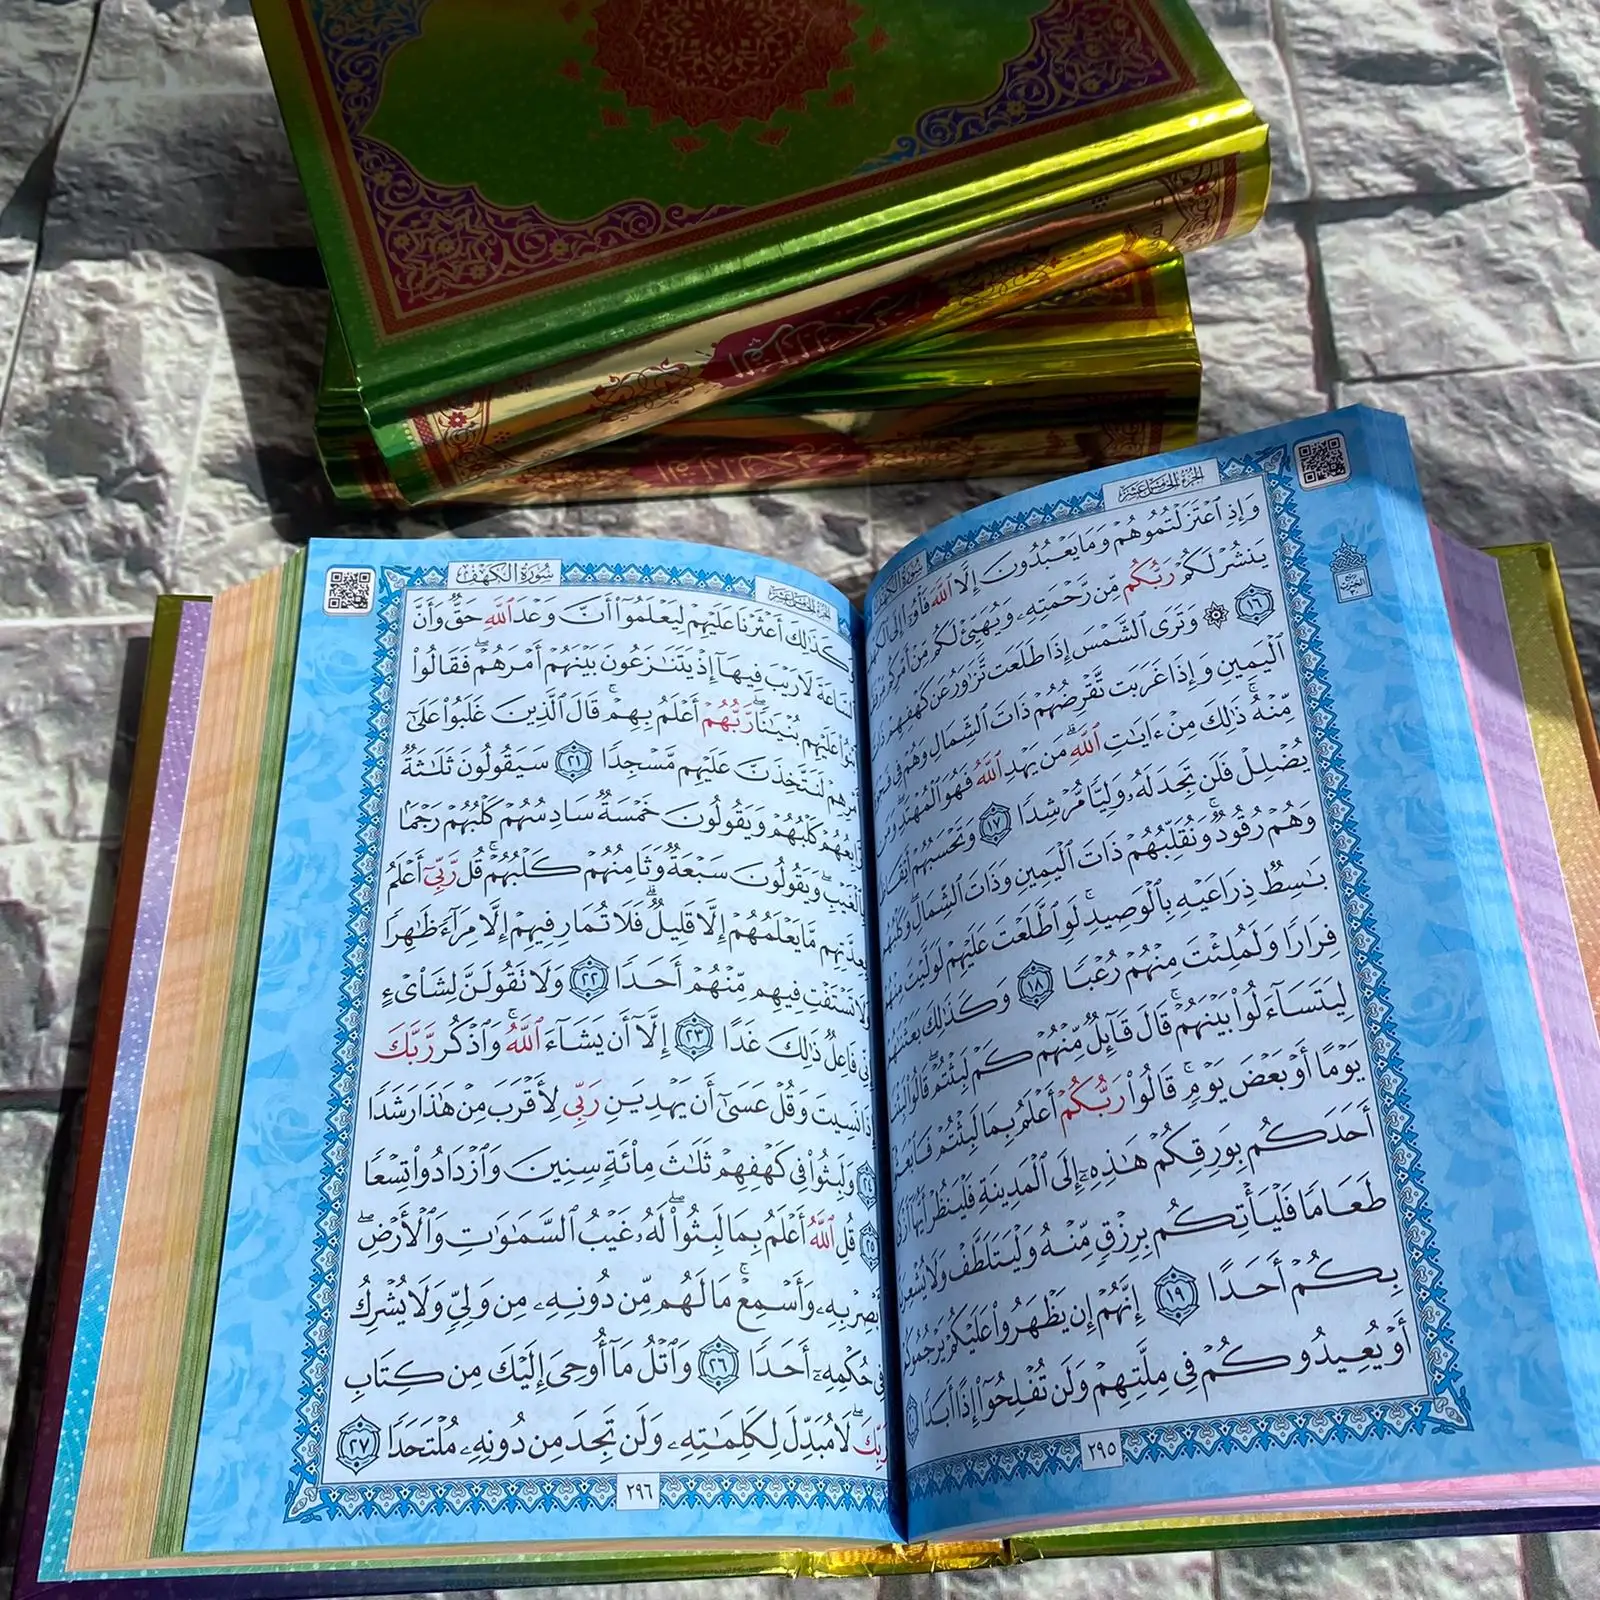 القرآن الكريم
القرآن الكريم
الجزء الخامس عشر
سورة الكهف
وَإِذِ ٱعْتَزَلْتُمُوهُمْ وَمَا يَعْبُدُونَ إِلَّا ٱللَّهَ فَأْوُۥٓا۟ إِلَى ٱلْكَهْفِ
يَنشُرْ لَكُمْ رَبُّكُم مِّن رَّحْمَتِهِۦ وَيُهَيِّئْ لَكُم مِّنْ أَمْرِكُم مِّرْفَقًا
١٦ ۞ وَتَرَى ٱلشَّمْسَ إِذَا طَلَعَت تَّزَٰوَرُ عَن كَهْفِهِمْ ذَاتَ
ٱلْيَمِينِ وَإِذَا غَرَبَت تَّقْرِضُهُمْ ذَاتَ ٱلشِّمَالِ وَهُمْ فِى فَجْوَةٍ
مِّنْهُ ۚ ذَٰلِكَ مِنْ ءَايَٰتِ ٱللَّهِ ۗ مَن يَهْدِ ٱللَّهُ فَهُوَ ٱلْمُهْتَدِ ۖ وَمَن
يُضْلِلْ فَلَن تَجِدَ لَهُۥ وَلِيًّا مُّرْشِدًا ١٧ وَتَحْسَبُهُمْ أَيْقَاظًا
وَهُمْ رُقُودٌ ۚ وَنُقَلِّبُهُمْ ذَاتَ ٱلْيَمِينِ وَذَاتَ ٱلشِّمَالِ ۖ وَكَلْبُهُم
بَٰسِطٌ ذِرَاعَيْهِ بِٱلْوَصِيدِ ۚ لَوِ ٱطَّلَعْتَ عَلَيْهِمْ لَوَلَّيْتَ مِنْهُمْ
فِرَارًا وَلَمُلِئْتَ مِنْهُمْ رُعْبًا ١٨ وَكَذَٰلِكَ بَعَثْنَٰهُمْ
لِيَتَسَآءَلُوا۟ بَيْنَهُمْ ۚ قَالَ قَآئِلٌ مِّنْهُمْ كَمْ لَبِثْتُمْ ۖ قَالُوا۟ لَبِثْنَا
يَوْمًا أَوْ بَعْضَ يَوْمٍ ۚ قَالُوا۟ رَبُّكُمْ أَعْلَمُ بِمَا لَبِثْتُمْ فَٱبْعَثُوٓا۟
أَحَدَكُم بِوَرِقِكُمْ هَٰذِهِۦٓ إِلَى ٱلْمَدِينَةِ فَلْيَنظُرْ أَيُّهَآ أَزْكَىٰ
طَعَامًا فَلْيَأْتِكُم بِرِزْقٍ مِّنْهُ وَلْيَتَلَطَّفْ وَلَا يُشْعِرَنَّ
بِكُمْ أَحَدًا ١٩ إِنَّهُمْ إِن يَظْهَرُوا۟ عَلَيْكُمْ يَرْجُمُوكُمْ
أَوْ يُعِيدُوكُمْ فِى مِلَّتِهِمْ وَلَن تُفْلِحُوٓا۟ إِذًا أَبَدًا
٢٩٥
الجزء الخامس عشر
سورة الكهف
وَكَذَٰلِكَ أَعْثَرْنَا عَلَيْهِمْ لِيَعْلَمُوٓا۟ أَنَّ وَعْدَ ٱللَّهِ حَقٌّ وَأَنَّ
ٱلسَّاعَةَ لَا رَيْبَ فِيهَآ إِذْ يَتَنَٰزَعُونَ بَيْنَهُمْ أَمْرَهُمْ ۖ فَقَالُوا۟
ٱبْنُوا۟ عَلَيْهِم بُنْيَٰنًا ۖ رَّبُّهُمْ أَعْلَمُ بِهِمْ ۚ قَالَ ٱلَّذِينَ غَلَبُوا۟ عَلَىٰٓ
أَمْرِهِمْ لَنَتَّخِذَنَّ عَلَيْهِم مَّسْجِدًا ٢١ سَيَقُولُونَ ثَلَٰثَةٌ
رَّابِعُهُمْ كَلْبُهُمْ وَيَقُولُونَ خَمْسَةٌ سَادِسُهُمْ كَلْبُهُمْ رَجْمًۢا
بِٱلْغَيْبِ ۖ وَيَقُولُونَ سَبْعَةٌ وَثَامِنُهُمْ كَلْبُهُمْ ۚ قُل رَّبِّىٓ أَعْلَمُ
بِعِدَّتِهِم مَّا يَعْلَمُهُمْ إِلَّا قَلِيلٌ ۗ فَلَا تُمَارِ فِيهِمْ إِلَّا مِرَآءً ظَٰهِرًا
وَلَا تَسْتَفْتِ فِيهِم مِّنْهُمْ أَحَدًا ٢٢ وَلَا تَقُولَنَّ لِشَا۟ىْءٍ
إِنِّى فَاعِلٌ ذَٰلِكَ غَدًا ٢٣ إِلَّآ أَن يَشَآءَ ٱللَّهُ ۚ وَٱذْكُر رَّبَّكَ
إِذَا نَسِيتَ وَقُلْ عَسَىٰٓ أَن يَهْدِيَنِ رَبِّى لِأَقْرَبَ مِنْ هَٰذَا رَشَدًا
٢٤ وَلَبِثُوا۟ فِى كَهْفِهِمْ ثَلَٰثَ مِا۟ئَةٍ سِنِينَ وَٱزْدَادُوا۟ تِسْعًا
٢٥ قُلِ ٱللَّهُ أَعْلَمُ بِمَا لَبِثُوا۟ ۖ لَهُۥ غَيْبُ ٱلسَّمَٰوَٰتِ وَٱلْأَرْضِ ۖ
أَبْصِرْ بِهِۦ وَأَسْمِعْ ۚ مَا لَهُم مِّن دُونِهِۦ مِن وَلِىٍّ وَلَا يُشْرِكُ
فِى حُكْمِهِۦٓ أَحَدًا ٢٦ وَٱتْلُ مَآ أُوحِىَ إِلَيْكَ مِن كِتَابِ
رَبِّكَ ۖ لَا مُبَدِّلَ لِكَلِمَٰتِهِۦ وَلَن تَجِدَ مِن دُونِهِۦ مُلْتَحَدًا ٢٧
٢٩٦